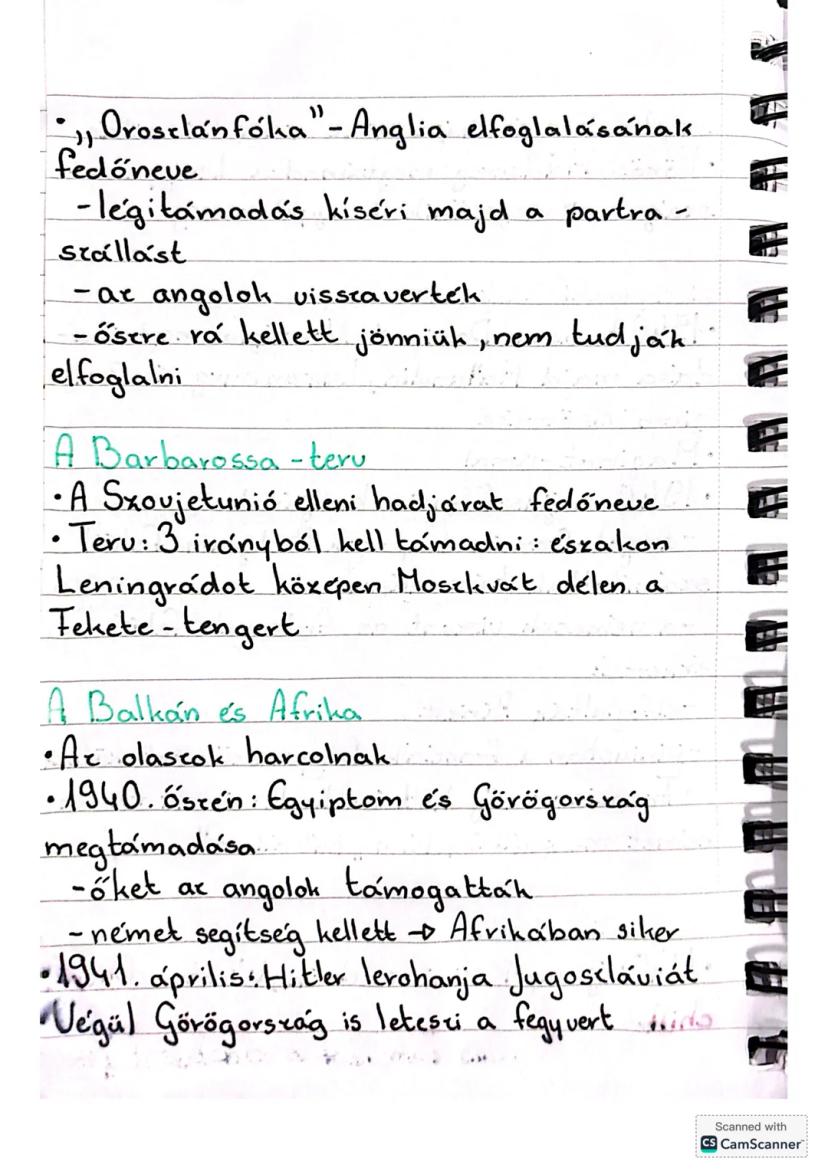 • „Oroszlánfóka" - Anglia elfoglalásának
fedőneve
- légitámadás kíséri majd a partra -
szállást
- az angolok visszaverték
- őszre rá kellett jönniük, nem tudják
elfoglalni
A Barbarossa - terv
• A Szovjetunió elleni hadjárat fedőneve
• Terv: 3 irányból kell támadni: északon
Leningrádot középen Moszkvát délen a
Fekete - tengert
A Balkán és Afrika
• Az olaszok harcolnak
• 1940. őszén: Egyiptom és Görögország
megtámadása
- őket az angolok támogatták
- német segítség kellett → Afrikában siker
• 1941. április: Hitler lerohanja Jugoszláviát
• Végül Görögország is leteszi a fegyvert
Scanned with
CS CamScanner